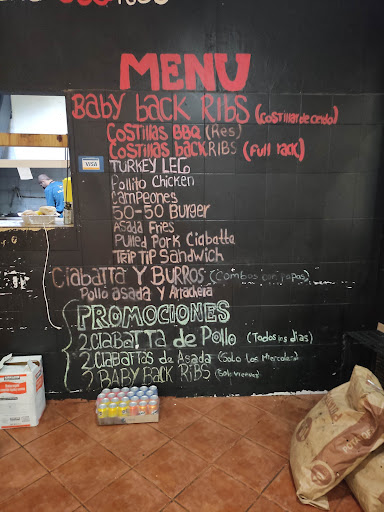 MENU
BABY BACK RIBS (costillar de cerdo)
COSTILLAS BBQ (Res)
COSTILLAS BACK RIBS (Full rack)
VISA
TURKEY LEG
Pollito Chicken
Campeones
50-50 Burger
Asada Fries
Pulled Pork Ciabatta
TRIP TIP SANDWICH
CIABATTA Y BURROS (Combos con papas)
Pollo asada y Arrachera
PROMOCIONES
2 CIABATTA de Pollo (Todos los dias)
2 CIABATTAS de Asada (Solo los Miercoles)
2 BABY BACK RIBS (Solo Viernes)